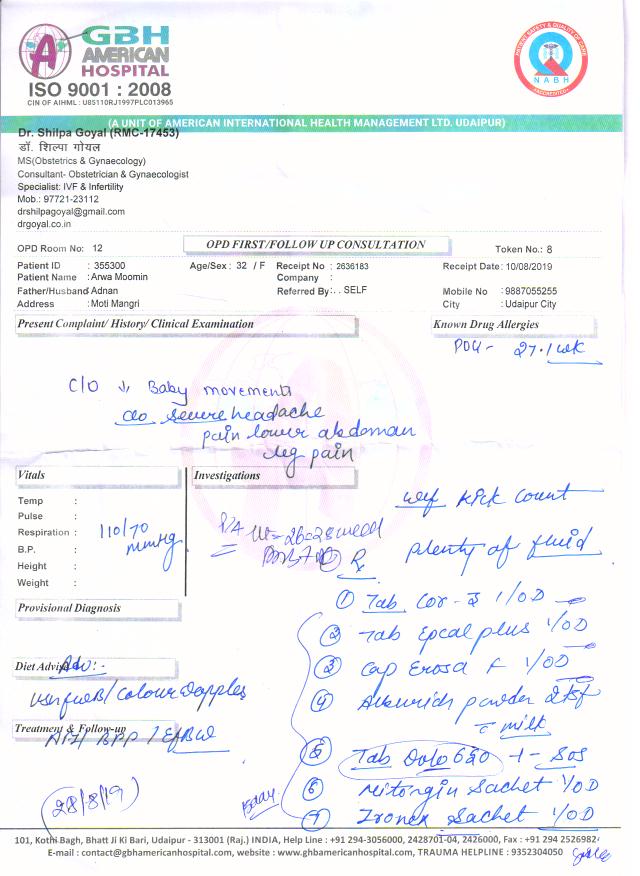 GBH
AMERICAN
HOSPITAL
ISO 9001 : 2008
CIN OF AIHML : U85110RJ1997PLC013965
PATIENT SAFETY & QUALITY OF CARE
NABH
ACCREDITED
(A UNIT OF AMERICAN INTERNATIONAL HEALTH MANAGEMENT LTD. UDAIPUR)
Dr. Shilpa Goyal (RMC-17453)
डॉ. शिल्पा गोयल
MS(Obstetrics & Gynaecology)
Consultant- Obstetrician & Gynaecologist
Specialist: IVF & Infertility
Mob.: 97721-23112
drshilpagoyal@gmail.com
drgoyal.co.in
OPD Room No: 12
OPD FIRST/FOLLOW UP CONSULTATION
Token No.: 8
Patient ID : 355300 Age/Sex : 32 / F Receipt No : 2636183 Receipt Date: 10/08/2019
Patient Name : Arwa Moomin Company :
Father/Husband Adnan Referred By: . . SELF Mobile No : 9887055255
Address : Moti Mangri City : Udaipur City
Present Complaint/ History/ Clinical Examination
Known Drug Allergies
POG - 27.1 wk
C/O ↓ Baby movements
c/o severe headache
pain lower abdoman
leg pain
Vitals
Investigations
Temp :
Pulse :
Respiration :
B.P. :
Height :
Weight :
110/70
mmHg
P/A
kick count
plenty of fluid
Rx
① Tab Cor-3 1/OD
② Tab Epcal plus 1/OD
③ Cap Erosa F 1/OD
④ powder 2tsf
c milk
⑤ Tab Dolo 650 -1- SOS
⑥ Nitorgin Sachet 1/OD
⑦ Zronex Sachet 1/OD
Provisional Diagnosis
Diet Advised
Adv:-
USG / Colour Dopples
Treatment & Follow-up
AFI / BPP / EFBW
28/8/19
101, Kothi Bagh, Bhatt Ji Ki Bari, Udaipur - 313001 (Raj.) INDIA, Help Line : +91 294-3056000, 2428701-04, 2426000, Fax : +91 294 2526982
E-mail : contact@gbhamericanhospital.com, website : www.gbhamericanhospital.com, TRAUMA HELPLINE : 9352304050